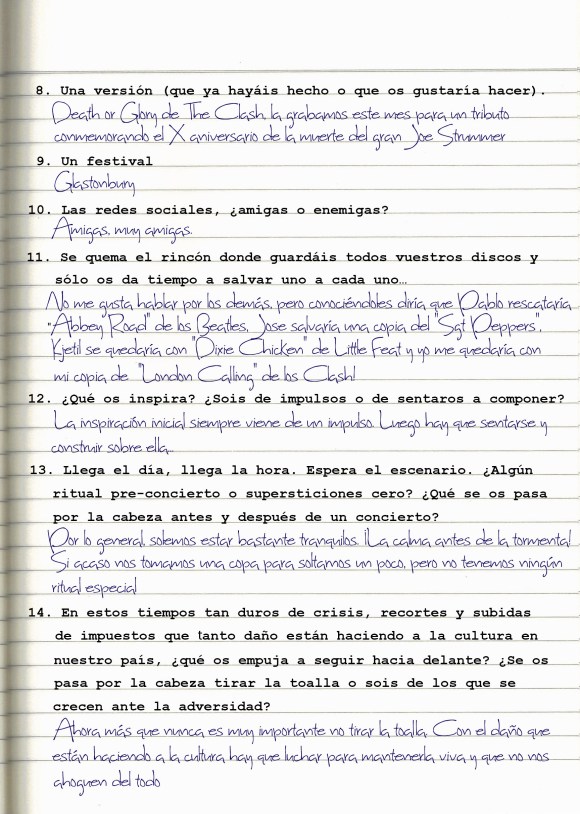 8. Una versión (que ya hayáis hecho o que os gustaría hacer).
Death or Glory de The Clash, la grabamos este mes para un tributo
conmemorando el X aniversario de la muerte del gran Joe Strummer
9. Un festival
Glastonbury
10. Las redes sociales, ¿amigas o enemigas?
Amigas, muy amigas.
11. Se quema el rincón donde guardáis todos vuestros discos y
sólo os da tiempo a salvar uno a cada uno…
No me gusta hablar por los demás, pero conociéndoles diría que Pablo rescataría
"Abbey Road" de los Beatles, Jose salvaría una copia del "Sgt Peppers",
Kjetil se quedaría con "Dixie Chicken" de Little Feat y yo me quedaría con
mi copia de "London Calling" de los Clash!
12. ¿Qué os inspira? ¿Sois de impulsos o de sentaros a componer?
La inspiración inicial siempre viene de un impulso. Luego hay que sentarse y
construir sobre ella...
13. Llega el día, llega la hora. Espera el escenario. ¿Algún
ritual pre-concierto o supersticiones cero? ¿Qué se os pasa
por la cabeza antes y después de un concierto?
Por lo general, solemos estar bastante tranquilos. ¡La calma antes de la tormenta!
Si acaso nos tomamos una copa para soltarnos un poco, pero no tenemos ningún
ritual especial
14. En estos tiempos tan duros de crisis, recortes y subidas
de impuestos que tanto daño están haciendo a la cultura en
nuestro país, ¿qué os empuja a seguir hacia delante? ¿Se os
pasa por la cabeza tirar la toalla o sois de los que se
crecen ante la adversidad?
Ahora más que nunca es muy importante no tirar la toalla. Con el daño que
están haciendo a la cultura hay que luchar para mantenerla viva y que no nos
ahoguen del todo